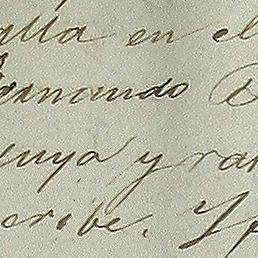 alla en el
Fernando D
uya y ra
cribe. Y